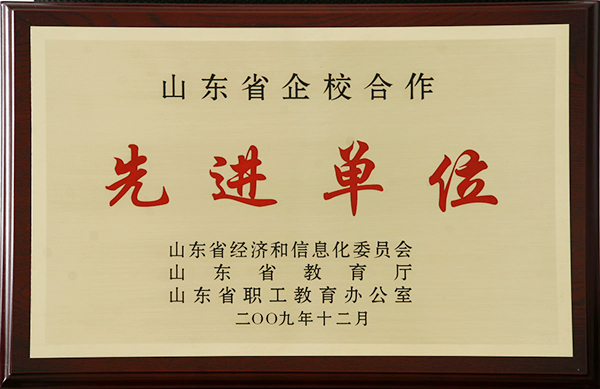 山东省企校合作
先进单位
山东省经济和信息化委员会
山东省教育厅
山东省职工教育办公室
二〇〇九年十二月